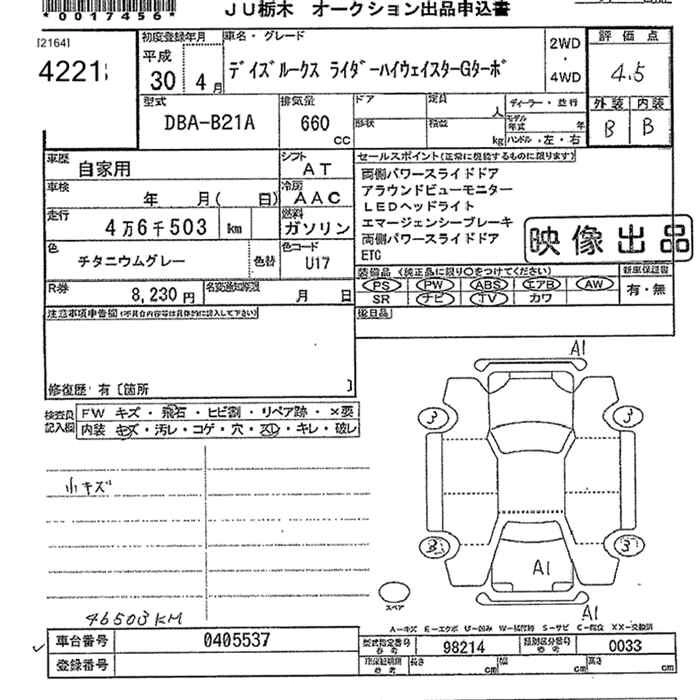 *0017456*
JU栃木 オークション出品申込書
[2164]
4221
初度登録年月
平成
30年 4月
車名・グレード
デイズルークス ライダーハイウェイスターGターボ
2WD
・
4WD
評価点
4.5
外装 内装
B B
型式
DBA-B21A
排気量
660
CC
ドア
形状
定員
人
積載
kg
ディーラー・並行
モデル年式 年
ハンドル・左・右
車歴
自家用
シフト
AT
車検
年 月( 日)
冷房
AAC
走行
4万6千503 km
燃料
ガソリン
色
チタニウムグレー
色替
色コード
U17
R券
8,230円
名変通知期限
月 日
セールスポイント(正常に機能するものに限ります)
両側パワースライドドア
アラウンドビューモニター
LEDヘッドライト
エマージェンシーブレーキ
両側パワースライドドア
ETC
映像出品
装備品 (純正品に限り〇をつけてください)
新車保証書
有・無
PS PW ABS エアB AW
SR ナビ TV カワ
後日品
注意事項申告欄(不具合内容等は具体的に記入して下さい)
修復歴: 有 [箇所 ]
検査員記入欄
FW キズ・飛石・ヒビ割・リペア跡・×要
内装 キズ・汚レ・コゲ・穴・スレ・キレ・破レ
小キズ
46503KM
A1
3 3
3 3
A1
A1
スペア
A-キズ E-エクボ U-凹み W-波打跡 S-サビ C-腐食 XX-交換済
車台番号 0405537
登録番号
型式指定番号
参考
98214
類別区分番号
参考
0033
長さ cm 幅 cm 高さ cm